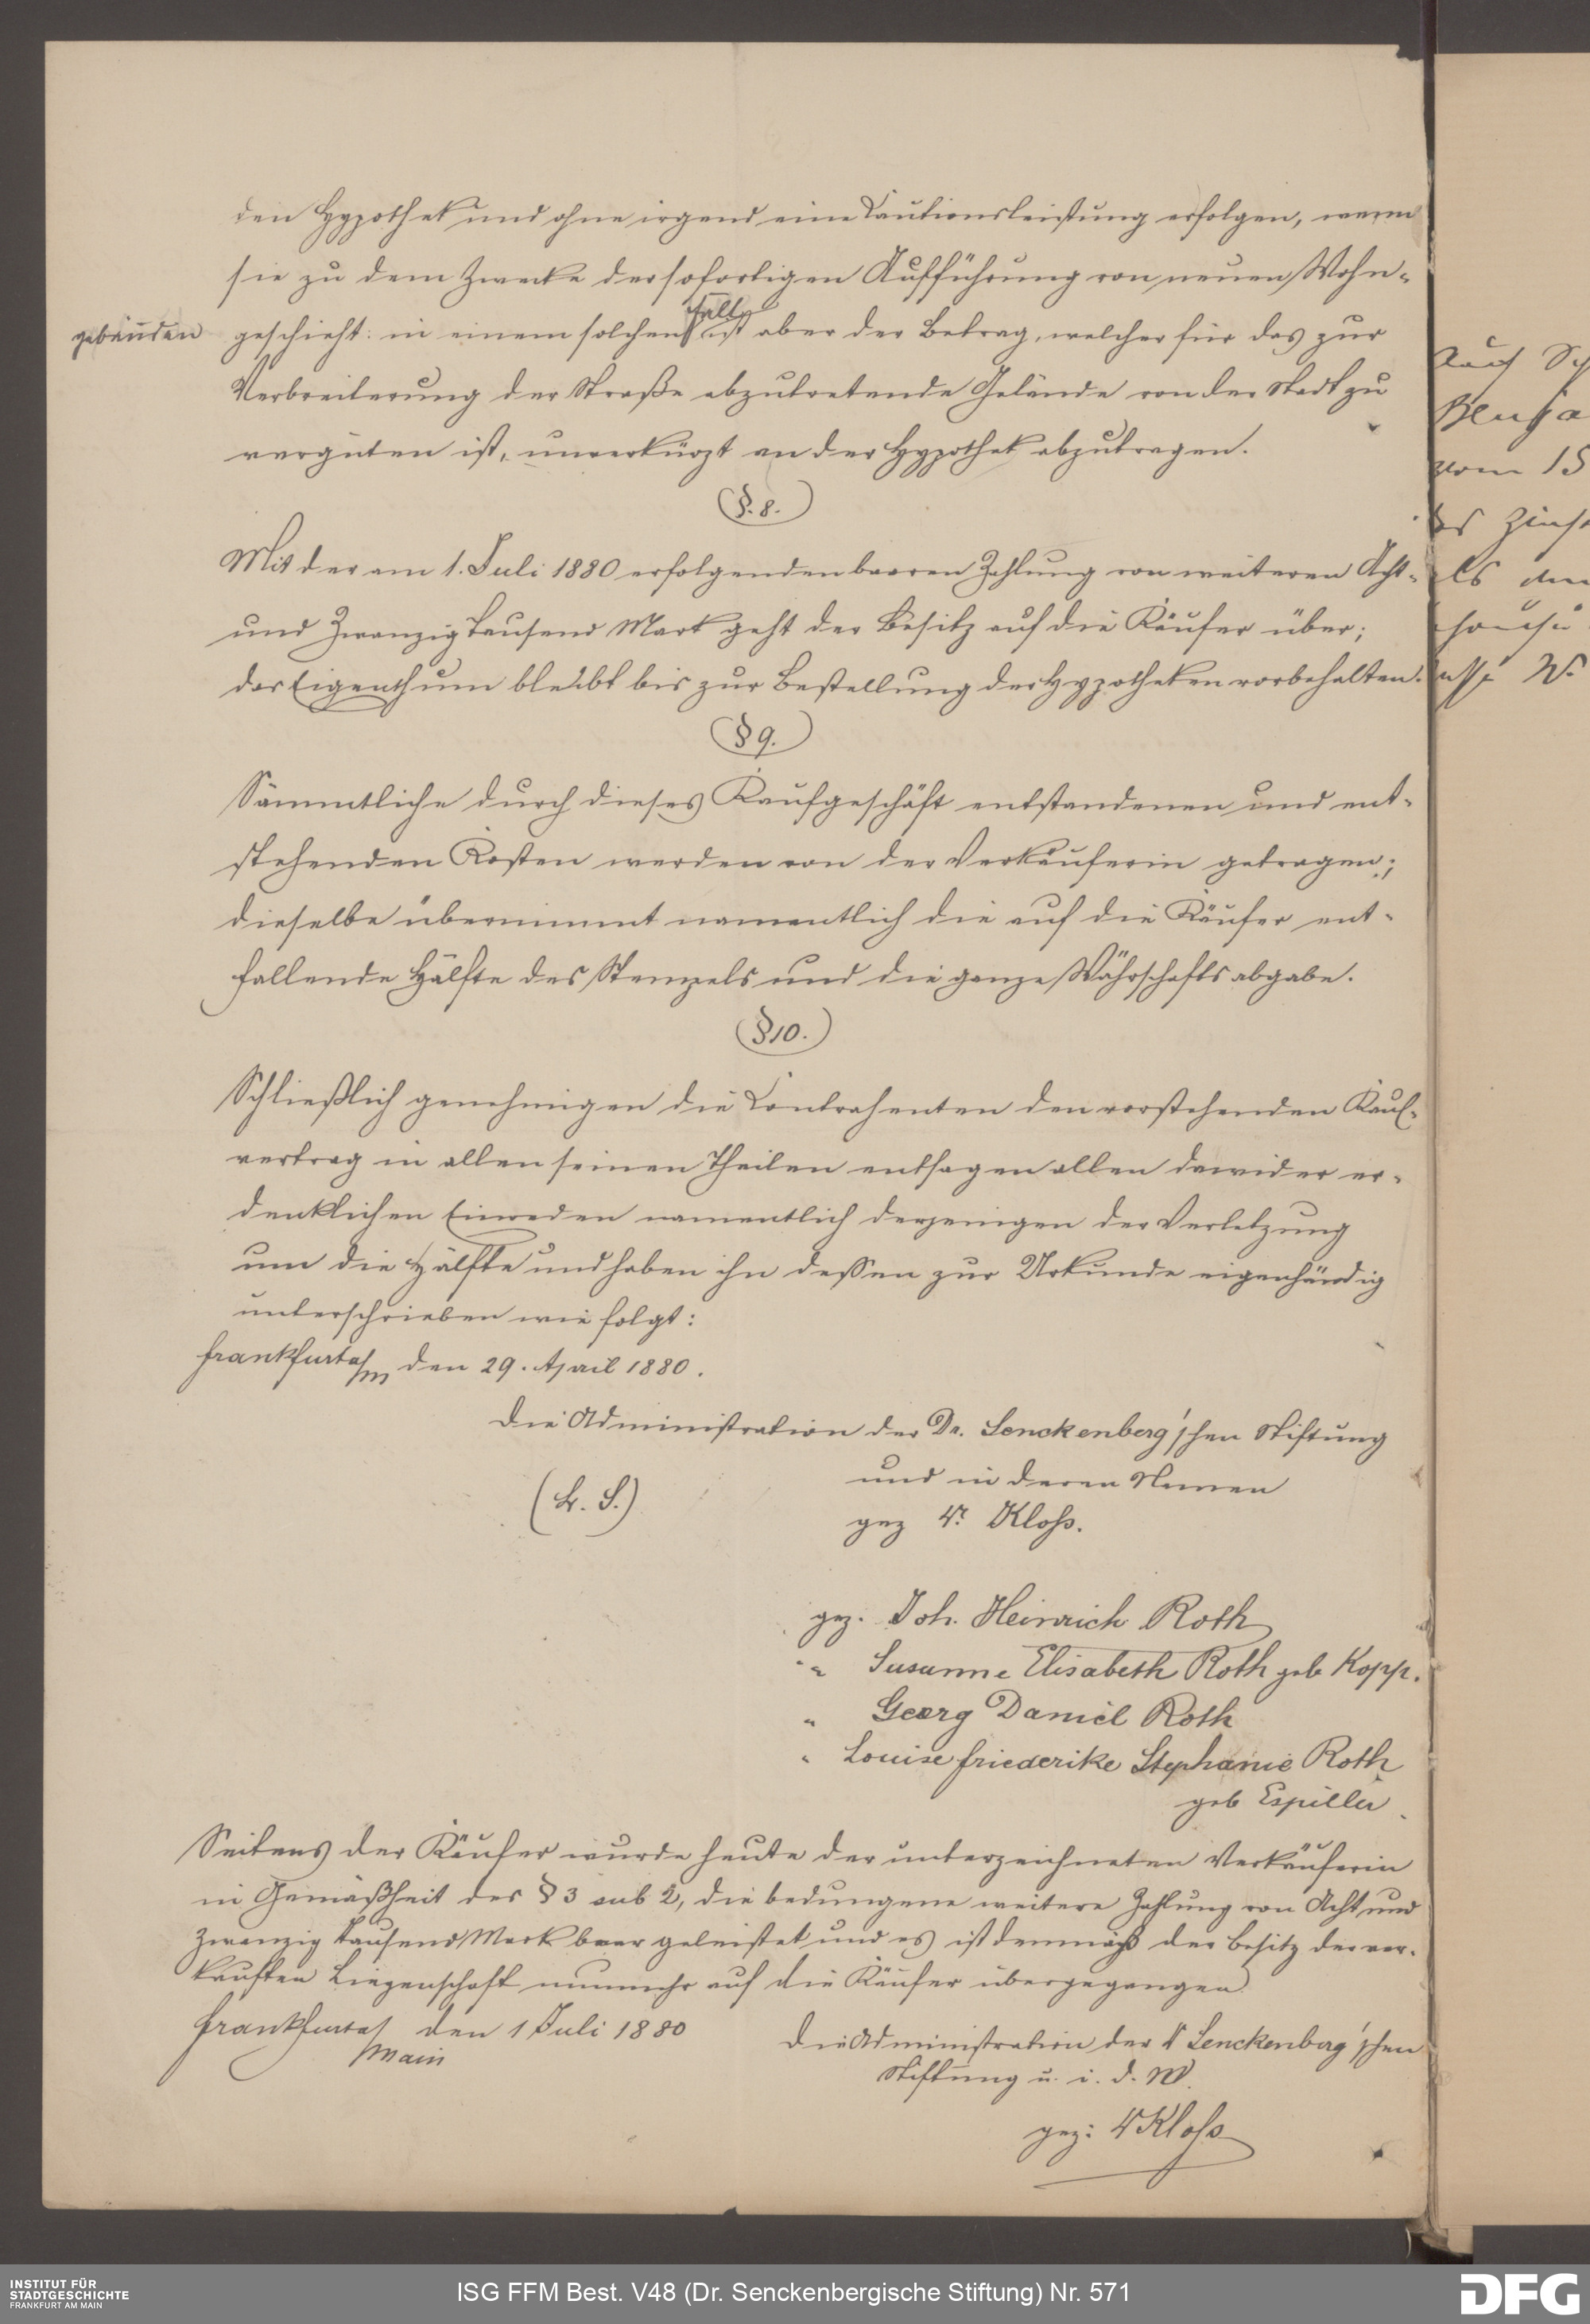 den Hypothek und ohne irgend eine Cautionsleistung erfolgen, wenn
sie zu dem Zwecke der sofortigen Aufführung von neuen Wohn-
gebäuden geschieht: in einem solchen Falle ist aber der Betrag, welcher für das zur
Verbreiterung der Straße abzutretende Gelände von der Stadt zu
vergüten ist, unverkürzt an der Hypothek abzutragen.
§. 8.
Mit der am 1. Juli 1880 erfolgenden baaren Zahlung von weiteren Acht-
und Zwanzig Tausend Mark geht der Besitz auf die Käufer über;
das Eigenthum bleibt bis zur Bestellung der Hypotheken vorbehalten.
§ 9.
Sämmtliche durch dieses Kaufgeschäft entstandenen und ent-
stehenden Kosten werden von der Verkäuferin getragen;
dieselbe übernimmt namentlich die auf die Käufer ent-
fallende Hälfte des Stempels und die ganze Währschaftsabgabe.
§ 10.
Schließlich genehmigen die Contrahenten den vorstehenden Kauf-
vertrag in allen seinen Theilen entsagen allen dawider er-
denklichen Einreden namentlich derjenigen der Verletzung
um die Hälfte und haben ihn dessen zur Urkunde eigenhändig
unterschrieben wie folgt:
Frankfurt a/m den 29. April 1880.
Die Administration der Dr. Senckenberg'schen Stiftung
und in deren Namen
(L. S.)
gez Dr. Kloss.
gez. Joh. Heinrich Roth
" Susanne Elisabeth Roth geb Kopp.
" Georg Daniel Roth
" Louise Friederike Stephanie Roth
geb Espiller
Seitens der Käufer wurde heute der unterzeichneten Verkäuferin
in Gemäßheit des § 3 sub 2, die bedungene weitere Zahlung von Acht und
Zwanzig Tausend Mark baar geleistet und es ist demnach der Besitz der ver-
kauften Liegenschaft nunmehr auf die Käufer übergegangen
Frankfurt a/ Main den 1 Juli 1880
Die Administration der Dr Senckenberg'schen
Stiftung u. i. d. N.
gez: Dr Kloss
vom 15
INSTITUT FÜR
STADTGESCHICHTE
FRANKFURT AM MAIN
ISG FFM Best. V48 (Dr. Senckenbergische Stiftung) Nr. 571
DFG